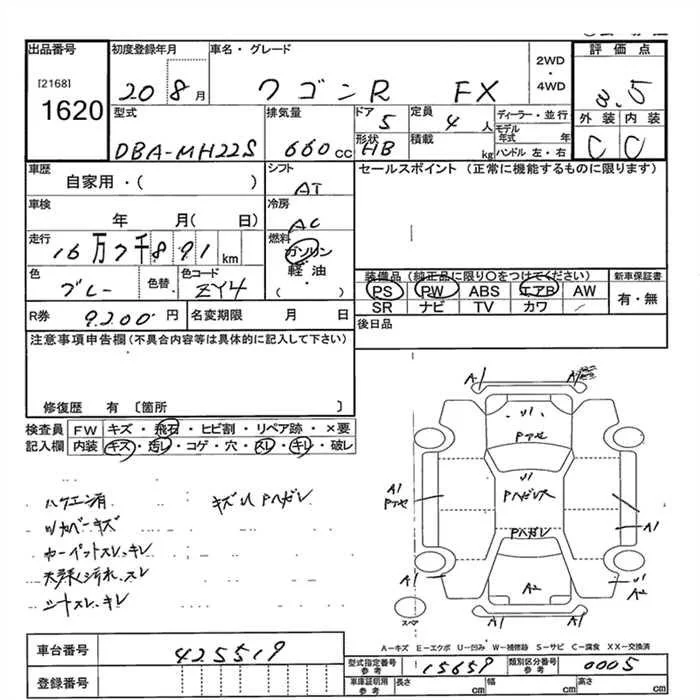 出品番号 初度登録年月 車名・グレード 2WD・4WD 評価点
[2168] 1620
20 8月 ワゴンR FX 3.5
型式 排気量 ドア 定員 ディーラー・並行 外装 内装
DBA-MH22S 660cc 5 4人 モデル年式 年 C C
形状 積載 ハンドル 左・右
HB kg
車歴 シフト セールスポイント (正常に機能するものに限ります)
自家用・( ) AT
車検 冷房
年 月( 日) AC
走行 燃料
16万7千891km ガソリン
軽油
( )
色 色替 色コード 装備品 (純正品に限り〇をつけてください) 新車保証書
ブルー ZY4 PS PW ABS エアB AW 有・無
SR ナビ TV カワ
R券 9200円 名変期限 月 日 後日品
注意事項申告欄 (不具合内容等は具体的に記入して下さい)
修復歴 有 〔箇所 〕
検査員 FW キズ・飛石・ヒビ割・リペア跡・×要
記入欄 内装 キズ・汚レ・コゲ・穴・スレ・キレ・破レ
A1 A1
U1
A1
U1
Pハガレ
A1
Pハガレ
A1 A2 U1
A2
スペア
A1 A1
キズU Pハガレ
カーペットスレ.キレ
シートスレ.キレ
A-キズ E-エクボ U-凹み W-補修跡 S-サビ C-腐食 XX-交換済
車台番号 425519 型式指定番号 参考 15659 類別区分番号 参考 0005
登録番号 車庫証明用 参考 長さ cm 幅 cm 高さ cm